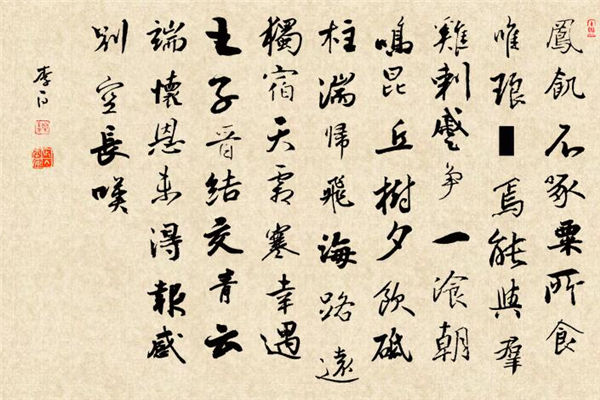 鳳飢不啄粟所食
唯琅■焉能與羣
雞刺蹙爭一湌朝
鳴昆丘樹夕飲砥
柱湍歸飛海路遠
獨宿天霜寒幸遇
王子晉結交青云
端懷恩未得報感
別空長嘆
李白